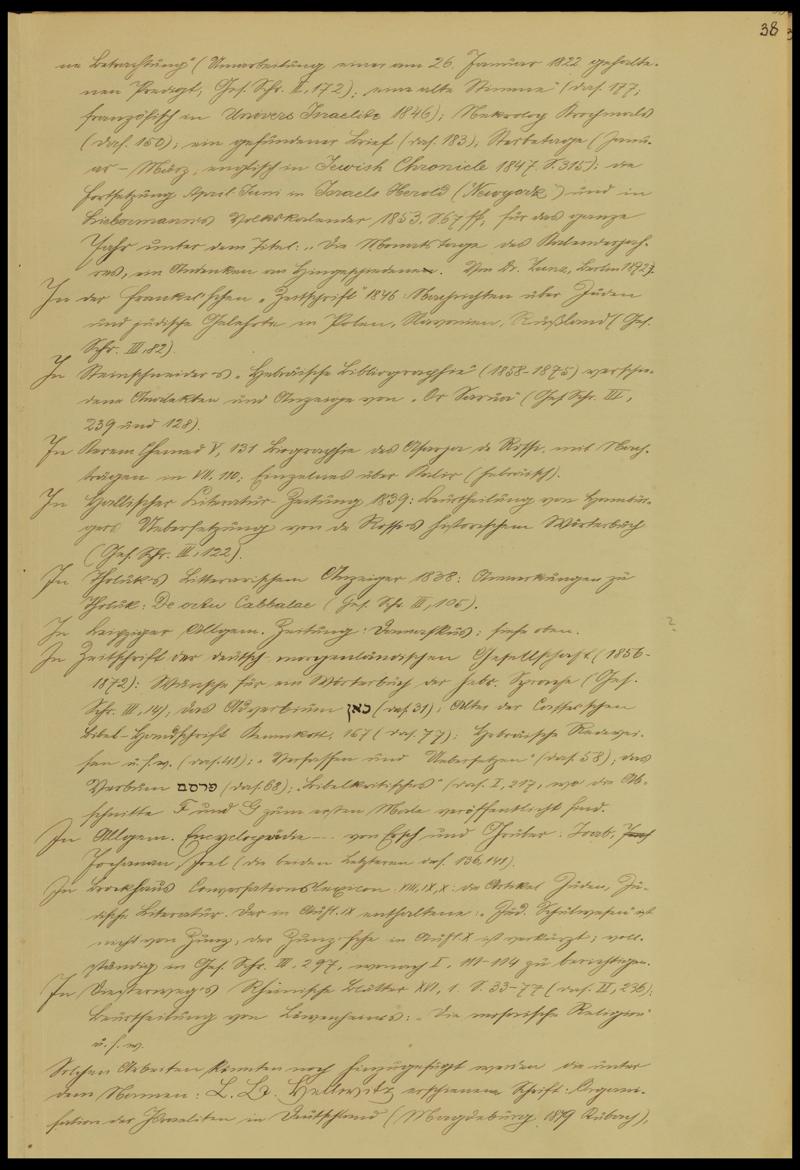 38
ne Betrachtung" (Umarbeitung einer am 26. Januar 1822 gehalte-
nen Predigt, Ges. Schr. II, 172); "eine alte Stimme" (das. 177,
französisch in Univers Israelite 1846); Nekrolog Krochmals
(das. 150); ein gefundener Brief (das. 183), Sterbetage (Janu-
ar – März, englisch in Jewish Chronicle 1847. S. 315): die
Fortsetzung April-Juni in Israels Herold (Newyork) und in
Liebermann's Volkskalender 1853. S 67 ff, für das ganze
Jahr unter dem Titel: „Die Monatstage des Kalenderjah-
res, ein Andenken an Hingeschiedene. Von Dr. Zunz, Berlin 1872).
In der Frankel'schen „Zeitschrift" 1846 Nachrichten über Juden
und jüdische Gelehrte in Polen, Slavonien, Rußland (Ges.
Schr. III, 82).
In Steinschneider's „Hebräische Bibliographie" (1858-1875) verschie-
dene Analekten und Anzeige von „Or Sarua" (Ges. Schr. III,
239 und 128).
In Kerem Chemed V, 131 Biographie des Asarja de Rossi, mit Nach-
trägen in VII, 110; Einzelnes über Kalir (hebräisch).
In Hallischer Literatur-Zeitung 1839: Beurtheilung von Hambur-
gers Uebersetzung von de Rossi's historischem Wörterbuch
(Ges. Schr. III, 122).
In Tholuk's Litterarischem Anzeiger 1838: Anmerkungen zu
Tholuk: De ortu Cabbalae (Ges. Schr. III, 105).
In Leipziger Allgem. Zeitung: Damaskus: siehe oben.
In Zeitschrift der deutsch-morgenländischen Gesellschaft (1856-
1872): Wünsche für ein Wörterbuch der hebr. Sprache (Ges.
Schr. III, 14), das Adverbium כאן (das. 31); Alter der Cassel'schen
Bibel-Handschrift Kennikott. 157 (das. 77): Hebräische Redewei-
sen u. s. w. (das. 41); „Verfassen und Uebersetzen" (das. 58); das
Verbum פרסם (das. 68); „Bibelkritisches" (das. I, 217, wo die Ab-
schnitte F und G zum ersten Male veröffentlicht sind.
In Allgem. Encyclopädie ... von Ersch und Gruber: Joab,
Jochanan, Joel (die beiden Letzteren das. 136, 141).
In Brockhaus Conversationslexicon VIII, IX, X: die Artikel Juden, Jü-
dische Literatur. Der in Aufl. IX enthaltene: „Jüd. Schulwesen" ist
nicht von Zunz, der Zunz'sche in Aufl. X ist verkürzt; voll-
ständig in Ges. Schr. III. 297, wonach I. 101-114 zu berichtigen.
In Diesterweg's Rheinische Blätter XVI, 1. S. 33-77 (das. II, 236):
Beurtheilung von Löwenheim's: „Die mosaische Religion"
u. s. w.
Solchen Arbeiten könnten noch hinzugefügt werden die unter
dem Namen: L. L. Hellwitz erschienene Schrift: Organi-
sation der Israeliten in Deutschland (Magdeburg 1819 Rubach),